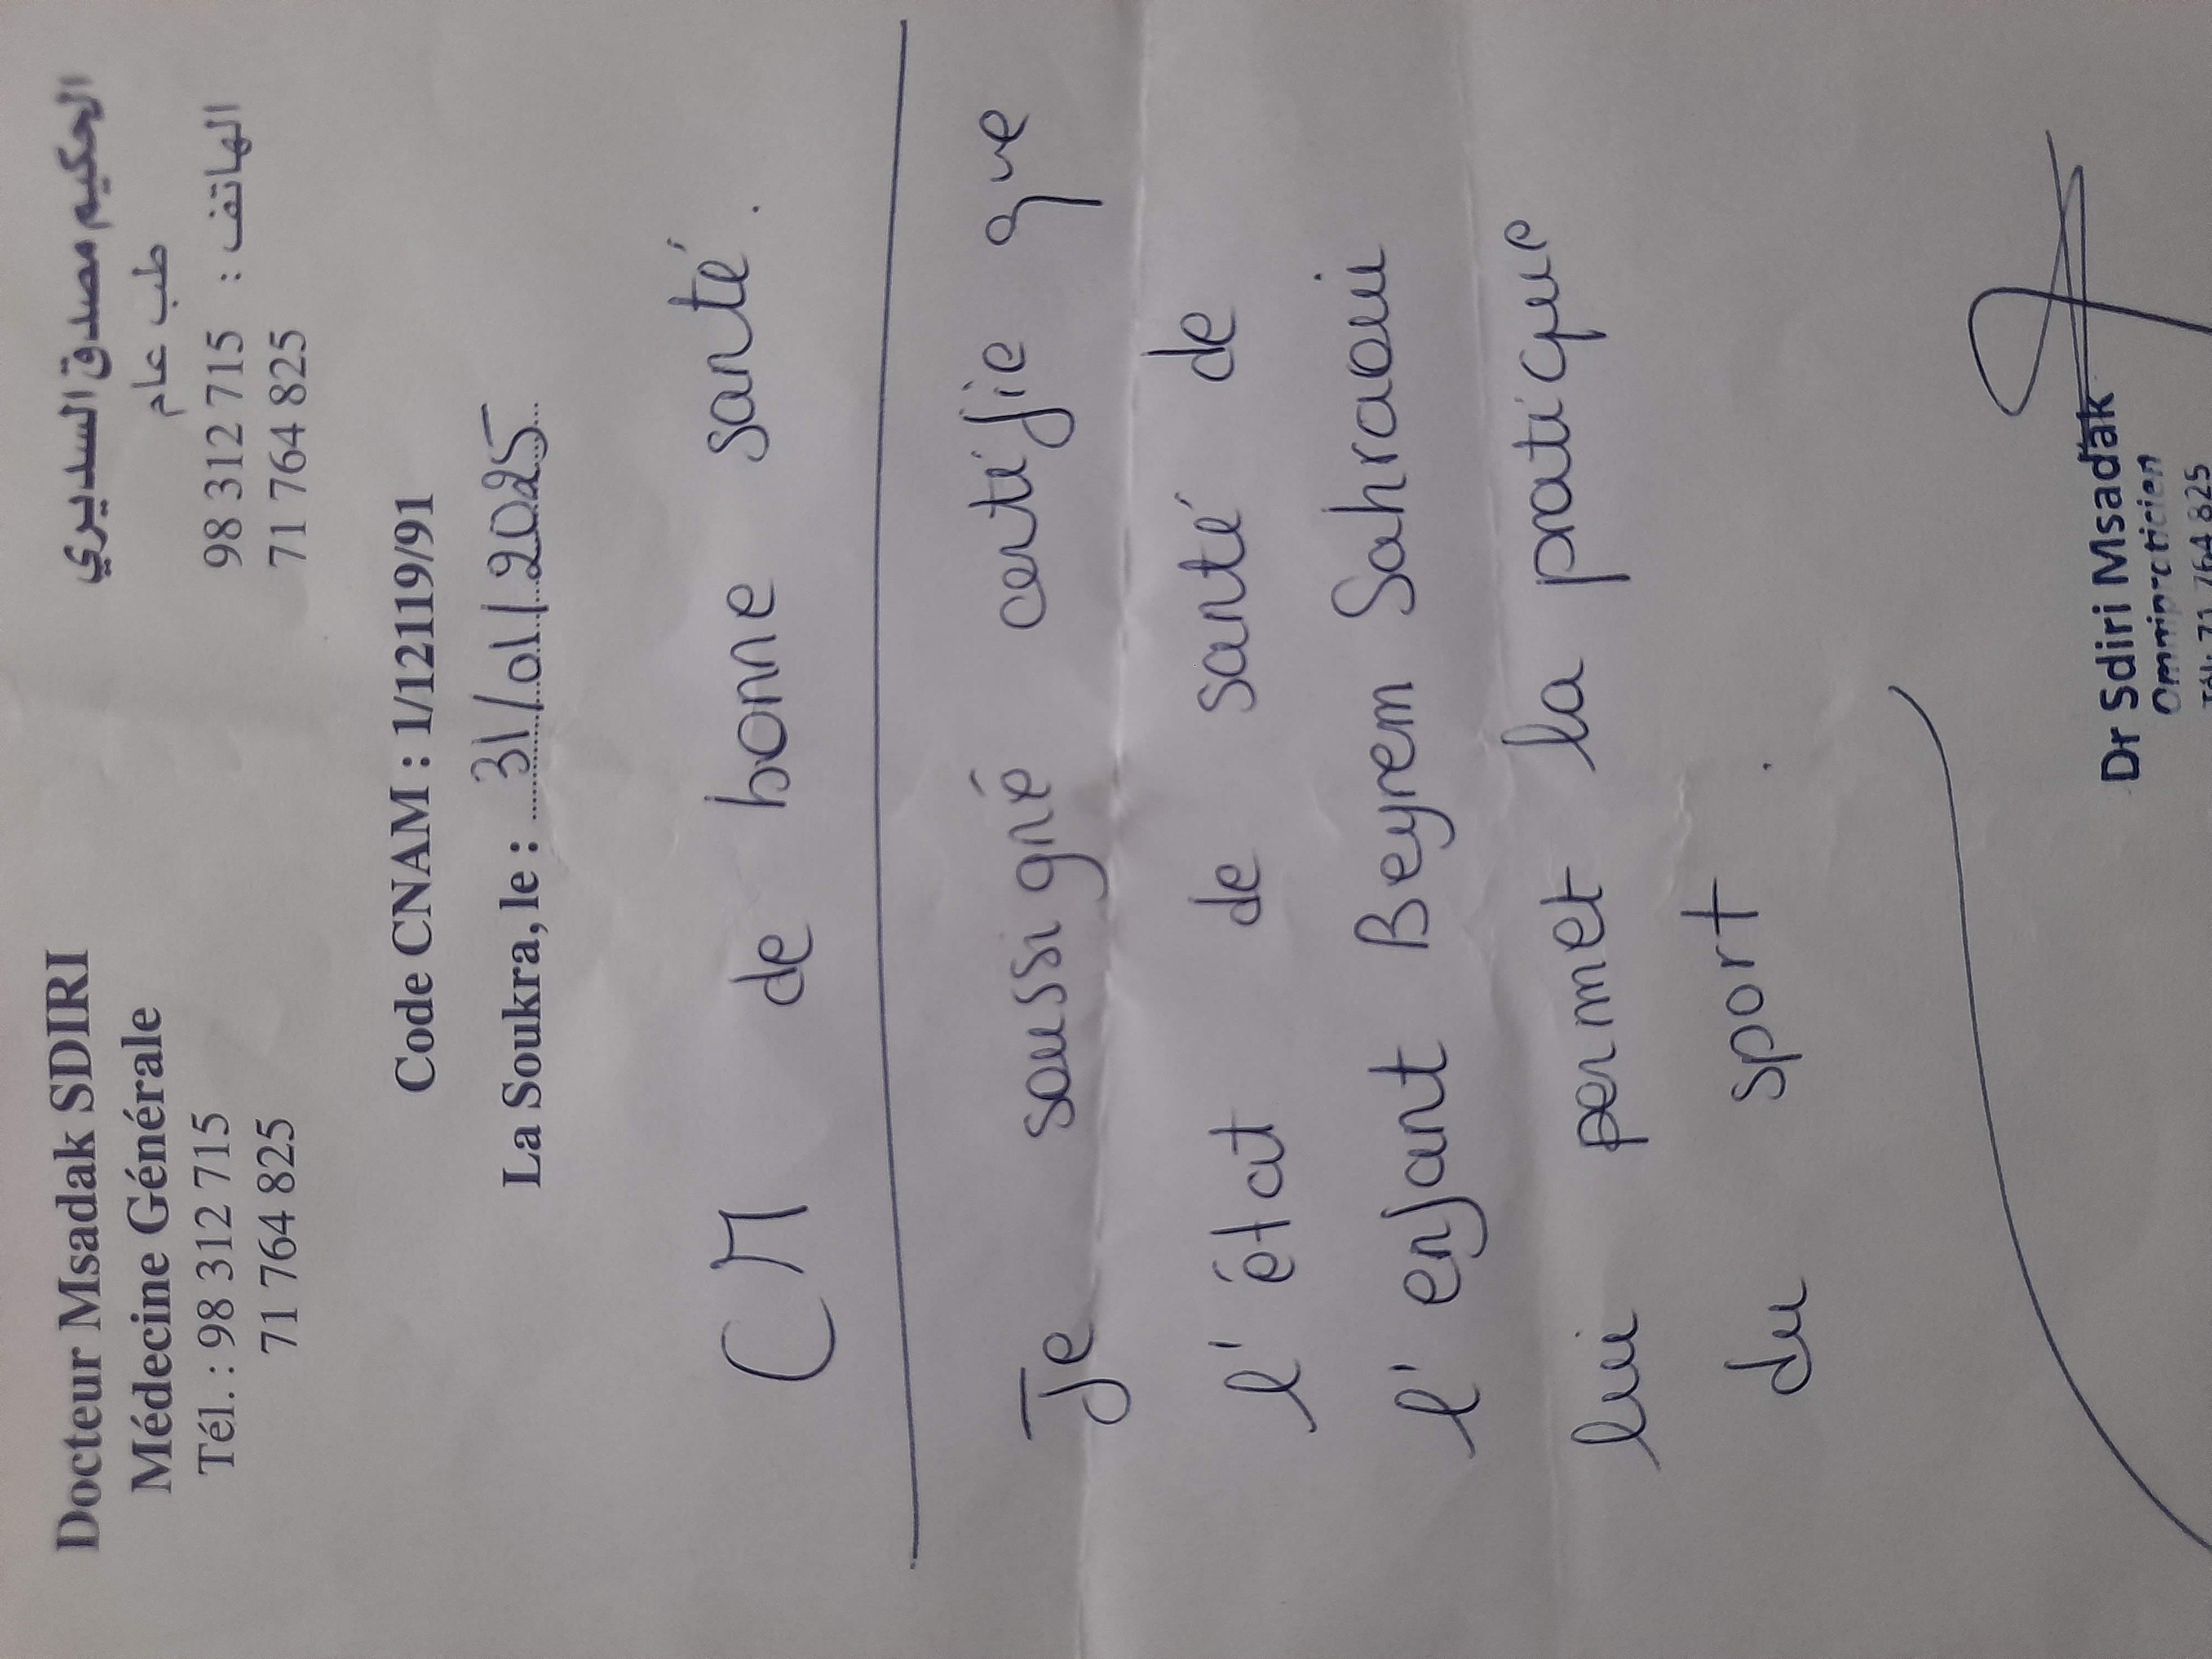 Docteur Msadak SDIRI
Médecine Générale
Tél. : 98 312 715
71 764 825
الحكيم مصدق السديري
طب عام
الهاتف : 98 312 715
71 764 825
Code CNAM : 1/12119/91
La Soukra, le : 31/01/2025
CM de bonne santé.
Je soussigné certifie que
l'état de santé de
l'enfant Beyrem Sahraoui
lui permet la pratique
du sport.
Dr Sdiri Msadak
Omnipraticien
Tél: 71 764 825